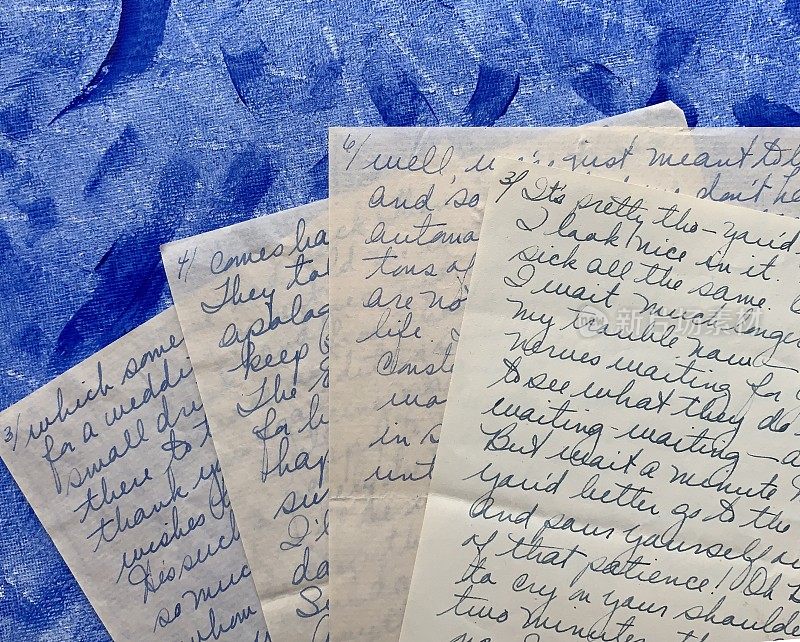 3/ which some
for a weddi
small dre
there to t
thank yo
wishes
He's such
so muc
whom
4/ comes ba
They to
apolog
keep
The
for h
hap
su
I'l
da
S
6/ well, just meant to b
and so don't he
automa
tons of
are no
life.
Conste
wo
in s
unt
3/ It's pretty tho - you'd
I look nice in it.
sick all the same.
I wait much longer
my trouble now -
nerves waiting for
to see what they do -
waiting - waiting - a
But wait a minute
you'd better go to the
and pour yourself
of that patience! Oh
to cry on your shoulde
two minutes
新片场素材